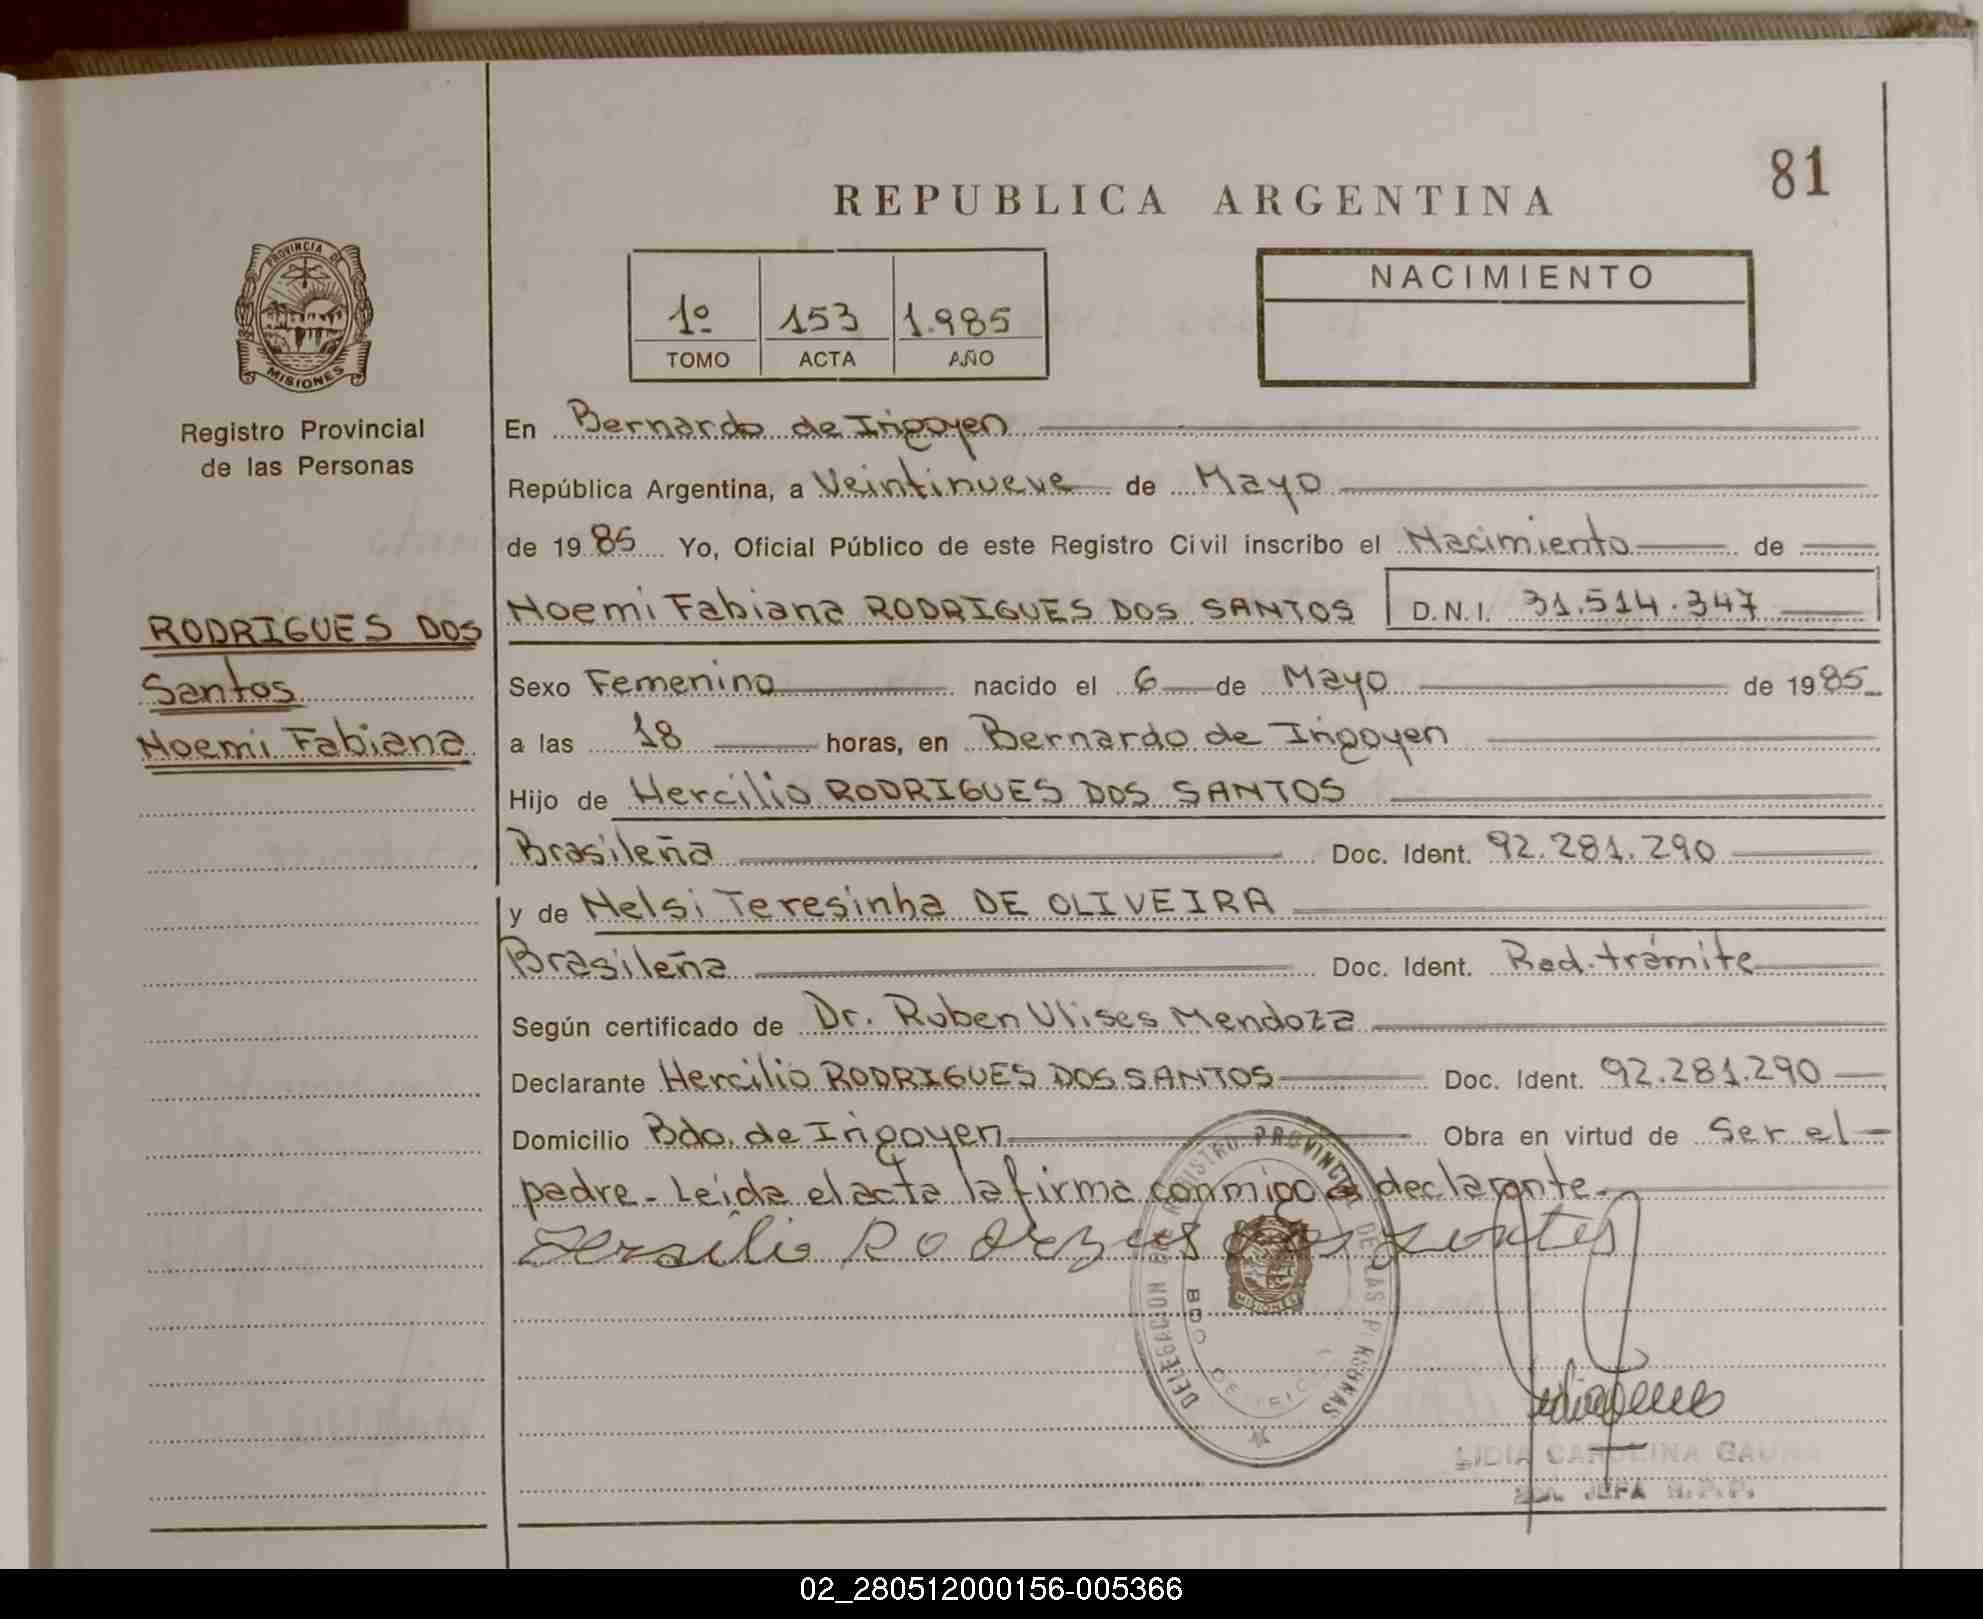 81
REPUBLICA ARGENTINA
PROVINCIA DE
MISIONES
Registro Provincial
de las Personas
1º 153 1.985
TOMO ACTA AÑO
NACIMIENTO
En Bernardo de Irigoyen
República Argentina, a Veintinueve de Mayo
de 19 85 Yo, Oficial Público de este Registro Civil inscribo el Nacimiento de
Noemi Fabiana RODRIGUES DOS SANTOS D.N.I. 31.514.347
RODRIGUES DOS
Santos
Noemi Fabiana
Sexo Femenino nacido el 6 de Mayo de 1985
a las 18 horas, en Bernardo de Irigoyen
Hijo de Hercilio RODRIGUES DOS SANTOS
Brasileña Doc. Ident. 92.281.290
y de Nelsi Teresinha DE OLIVEIRA
Brasileña Doc. Ident. Rad. trámite
Según certificado de Dr. Ruben Ulises Mendoza
Declarante Hercilio RODRIGUES DOS SANTOS Doc. Ident. 92.281.290
Domicilio Bdo. de Irigoyen Obra en virtud de Ser el
padre - Leida el acta la firma conmigo el declarante.
DELEGACION DEL REGISTRO PROVINCIAL DE LAS PERSONAS
MISIONES
LIDIA CAROLINA GAUNA
JEFA R.P.P.
02_280512000156-005366